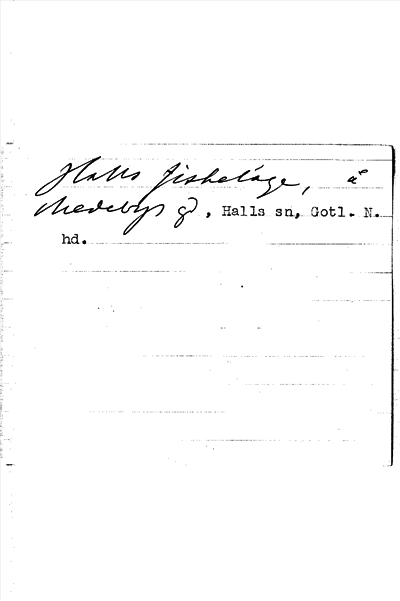 Halls fiskeläge, å
Medebys ägor, Halls sn, Gotl. N.
hd.